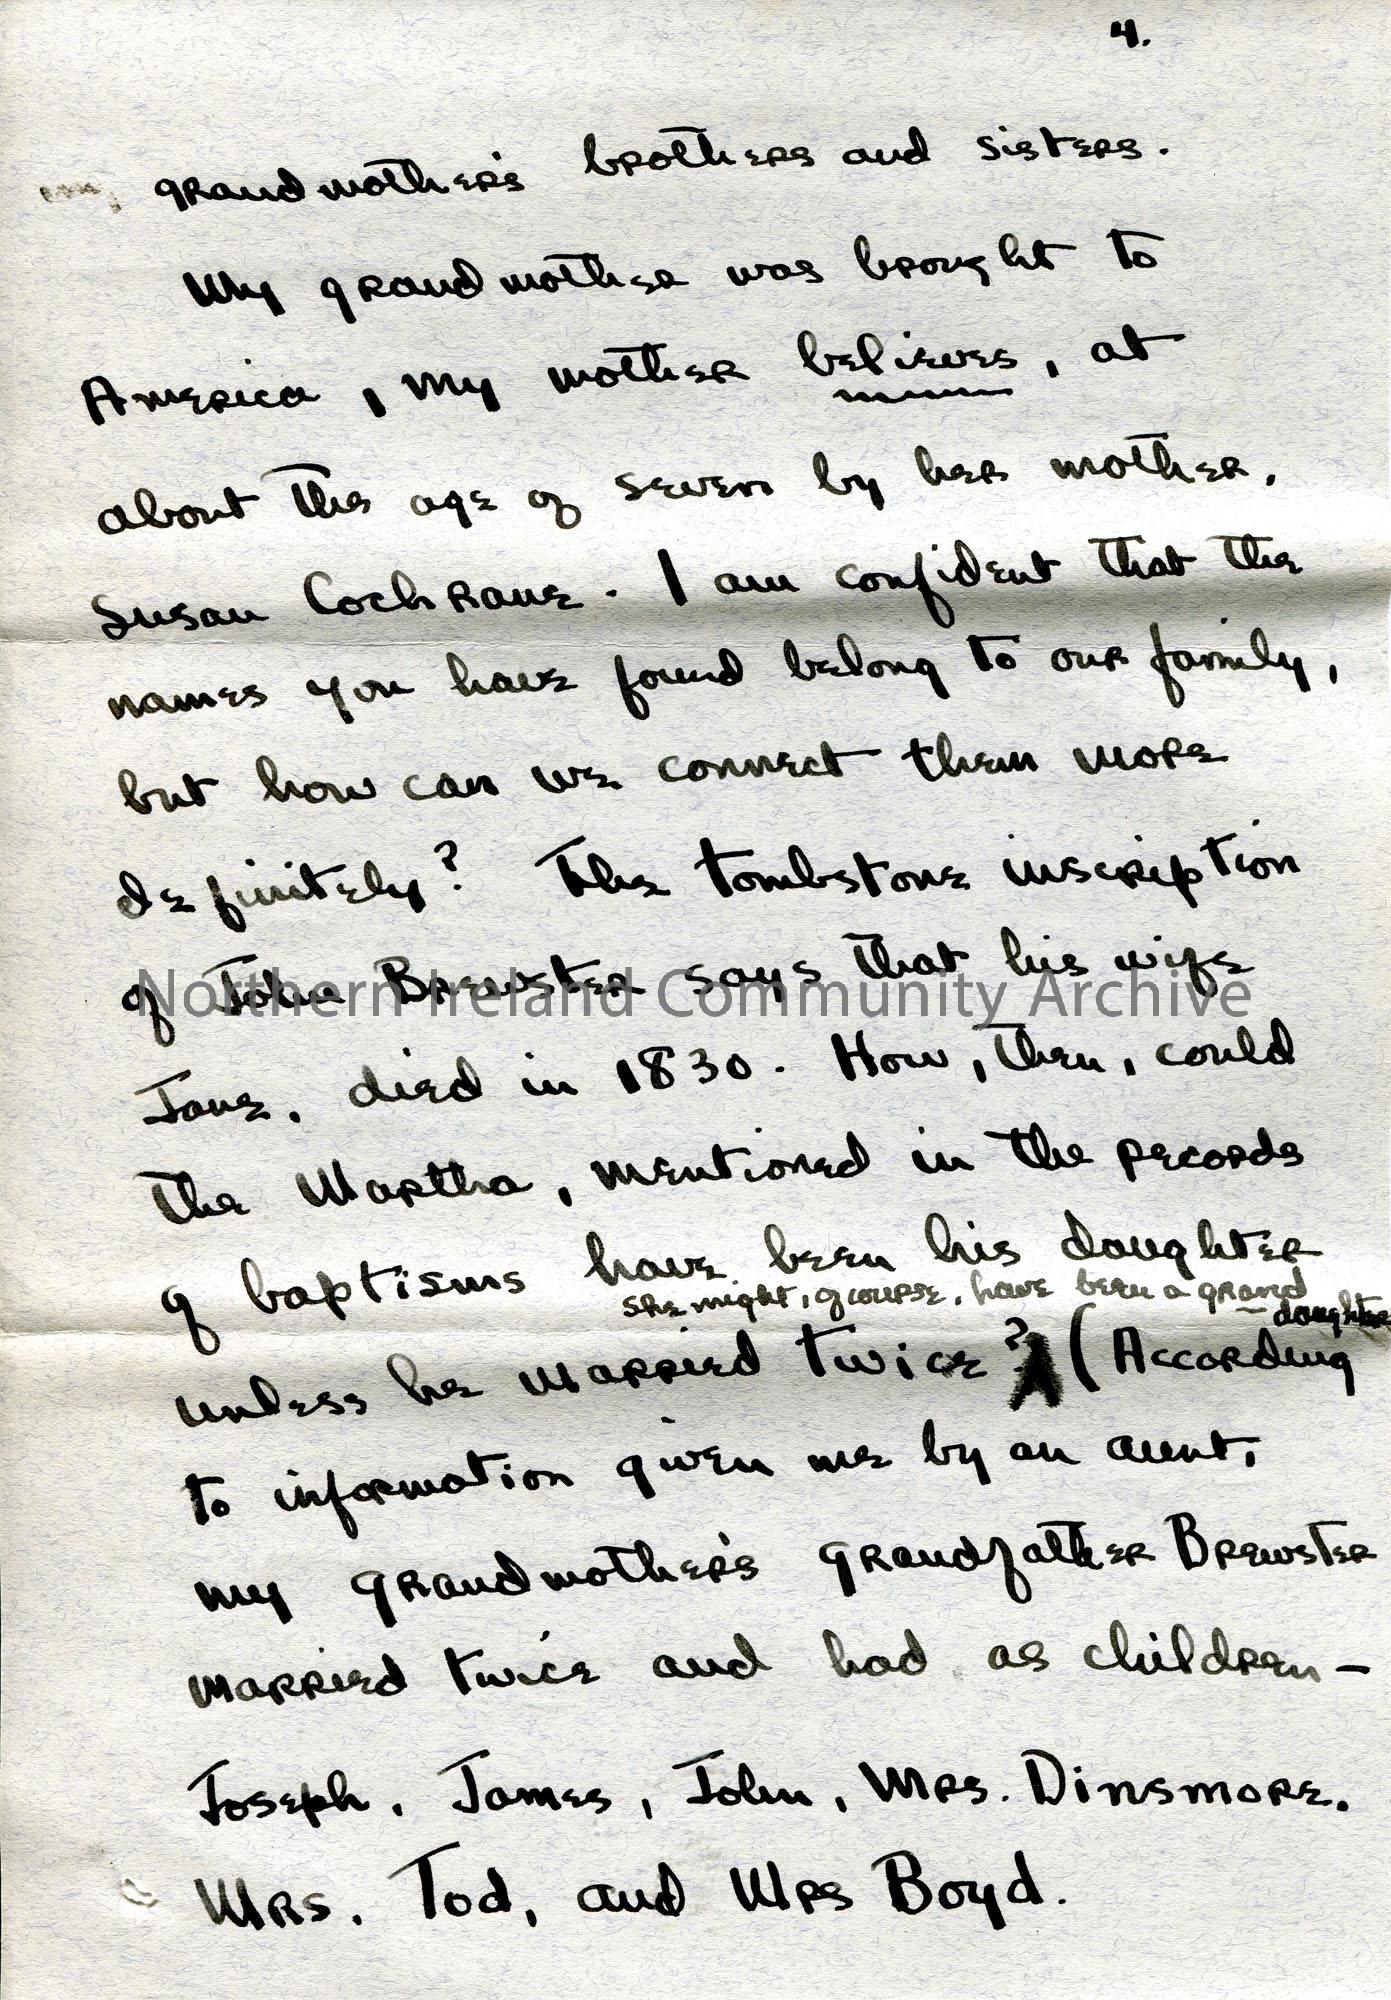 4.
my grandmother's brothers and sisters.
My grandmother was brought to
America, my mother believes, at
about the age of seven by her mother,
Susan Cochrane. I am confident that the
names you have found belong to our family,
but how can we connect them more
definitely? The tombstone inscription
of John Brewster says that his wife
Northern Ireland Community Archive
Jane, died in 1830. How, then, could
the Martha, mentioned in the records
of baptisms have been his daughter
she might, of course, have been a grand
-daughter
unless he married twice? (According
to information given me by an aunt,
my grandmother's grandfather Brewster
married twice and had as children—
Joseph, James, John, Mrs. Dinsmore,
Mrs. Tod, and Mrs Boyd.